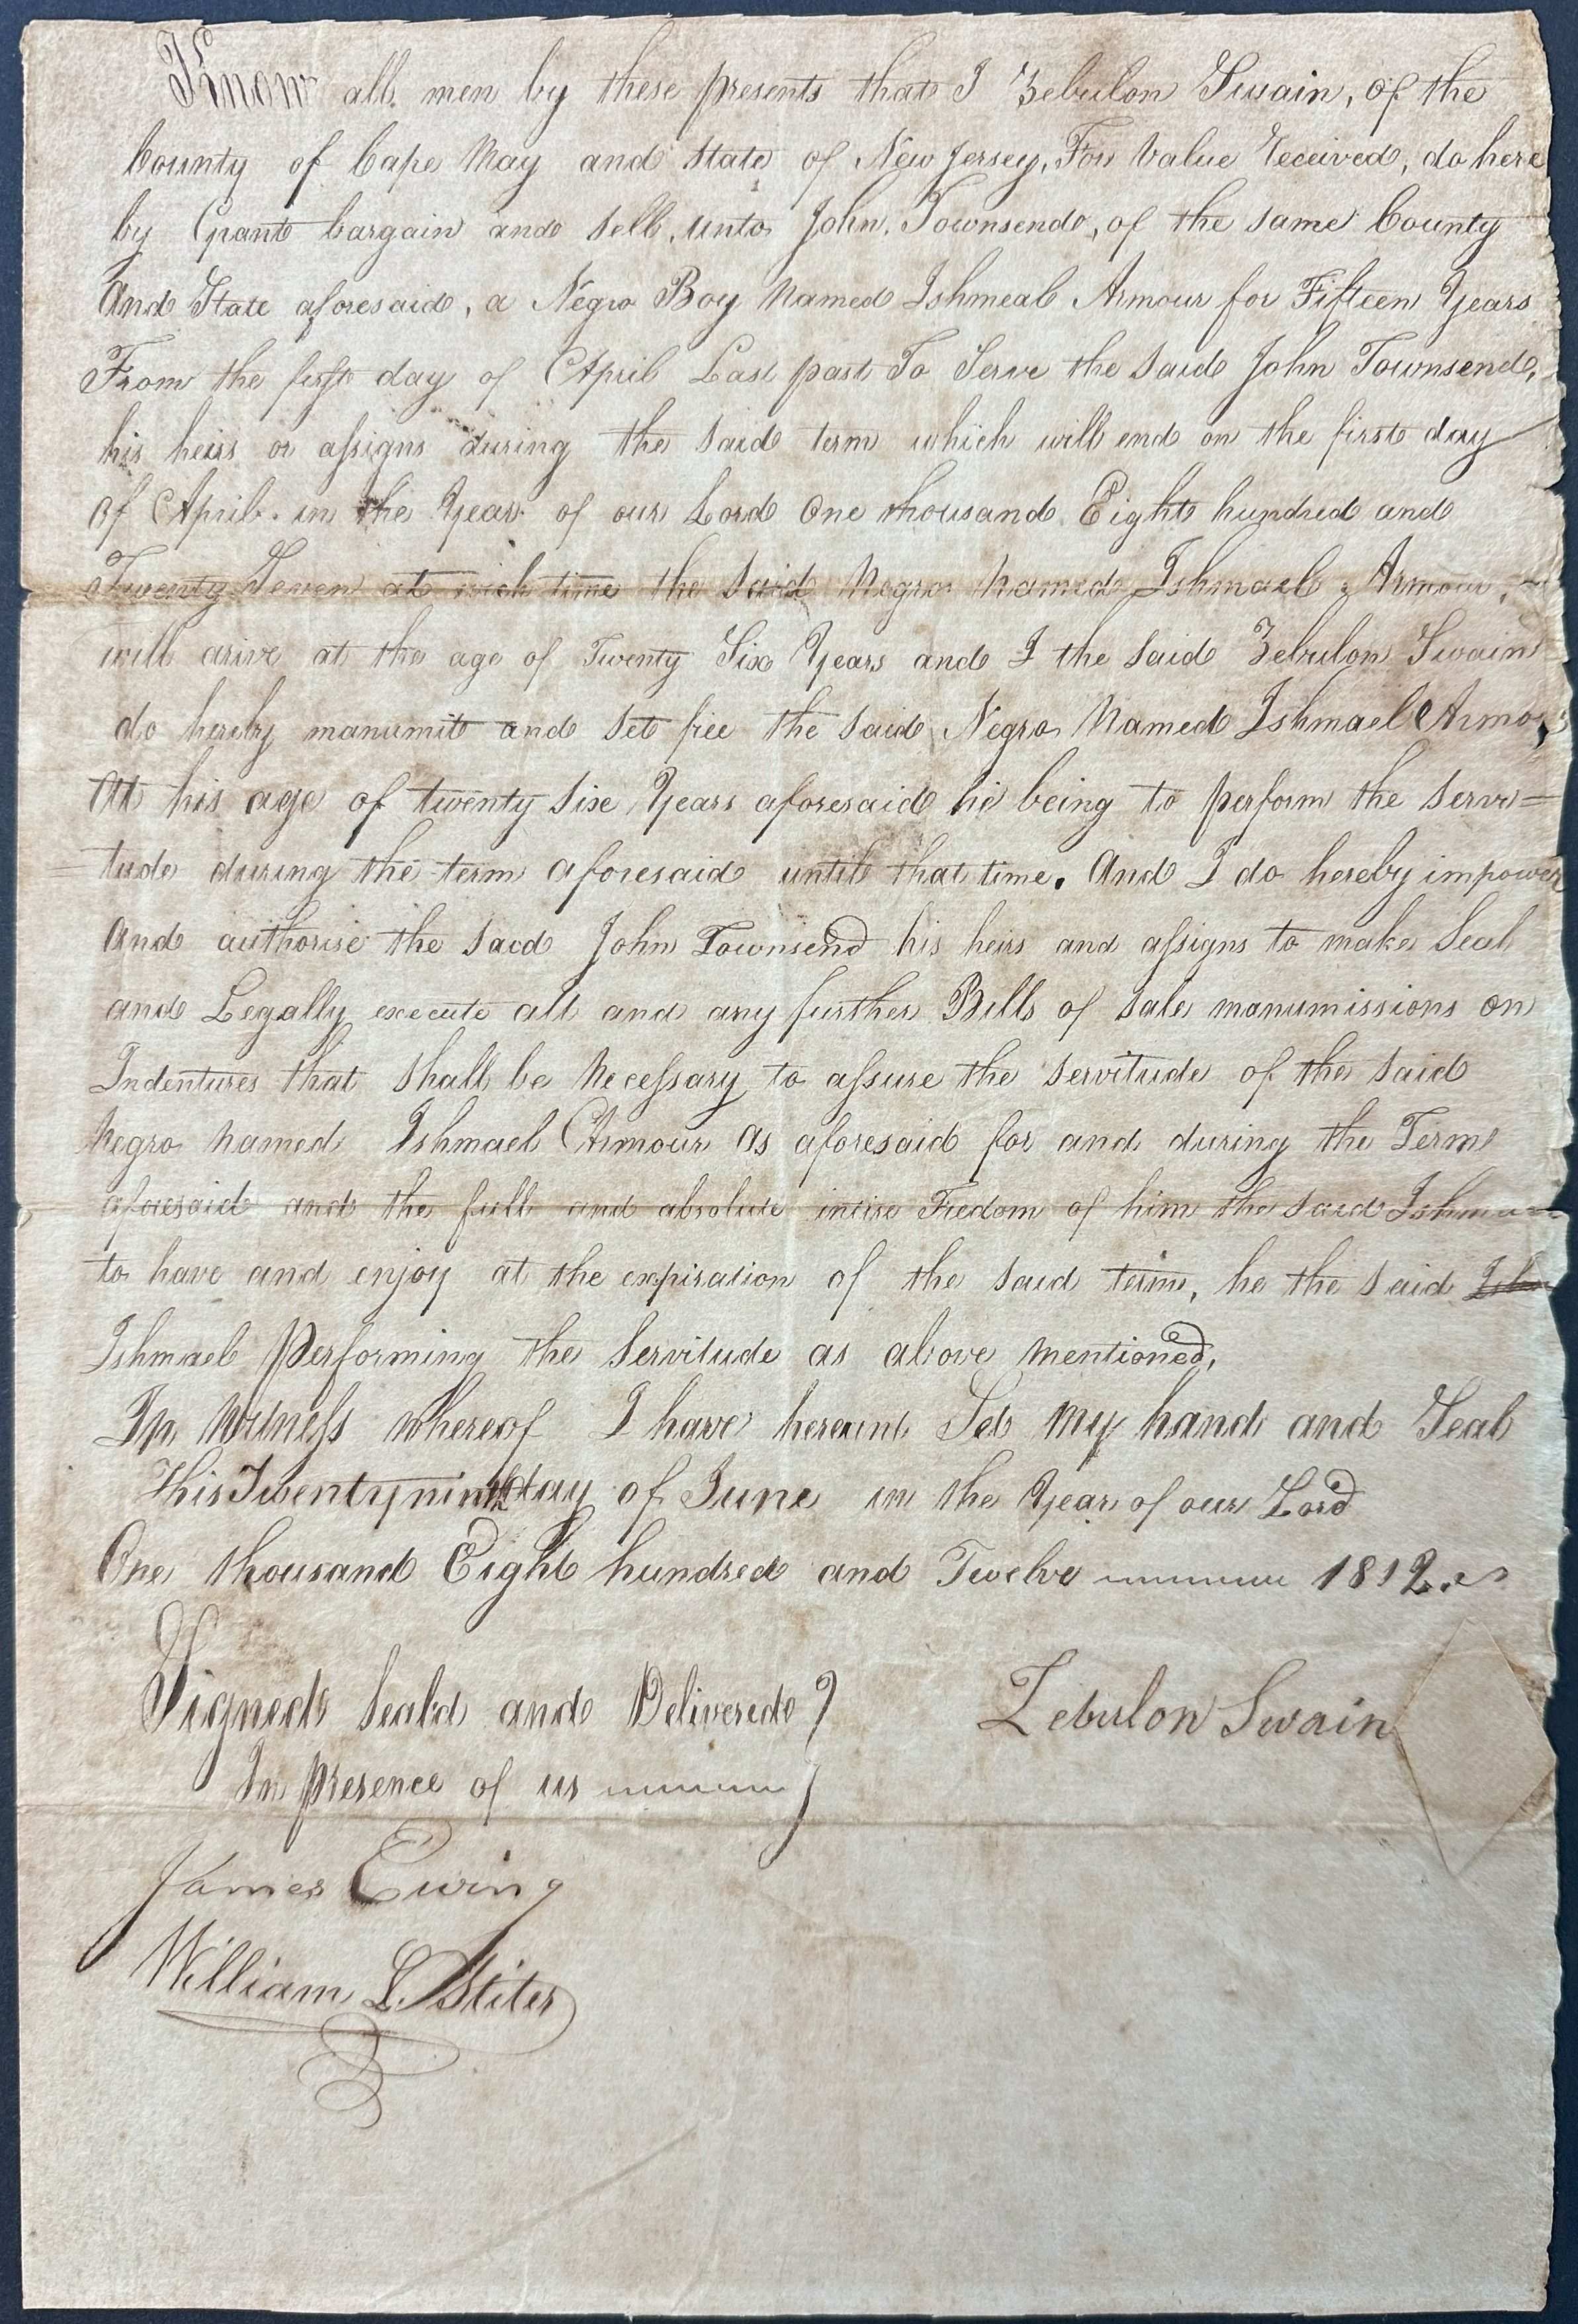 Know all men by these presents that I Zebulon Swain, of the
County of Cape May and State of New Jersey, For Value Received, do here
by Grant bargain and Sell, unto John, Townsend, of the same County
And State aforesaid, a Negro Boy Named Ishmeal Armour for Fifteen Years
From the first day of April Last past To Serve the Said John Townsend,
his heirs or assigns during the said term which will end on the first day
of April in the Year of our Lord One thousand Eight hundred and
Twenty Seven at wich time the Said Negro Named Ishmael Armour,
will arive at the age of Twenty Six Years and I the Said Zebulon Swain
do hereby manumit and Set free the Said Negro Named Ishmael Armo
At his age of twenty Six Years aforesaid he being to perform the Servi=
=tude during the term aforesaid until that time. And I do hereby impower
And authorise the Said John Townsend his heirs and assigns to make Seal
and Legally execute all and any further Bills of Sale manumissions or
Indentures that Shall be Necessary to assure the Servitude of the Said
Negro Named Ishmael Armour As aforesaid for and during the Term
aforesaid and the full and absolute intire Fredom of him the Said Ishma
to have and enjoy at the expiration of the Said term, he the Said
Ishmael Performing the Servitude as above Mentioned,
In Witness Whereof I have hereunt Set My hand and Seal
This Twenty ninth day of June in the Year of our Lord
One thousand Eight hundred and Twelve 1812.
Signed Seal'd and Delivered
In Presence of us
Zebulon Swain
James Ewing
William L. Stites